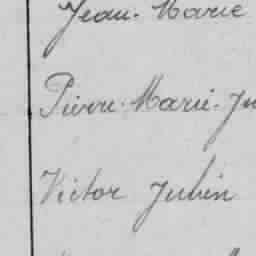 Jean-Marie
Pierre-Marie-Ju
Victor Julien